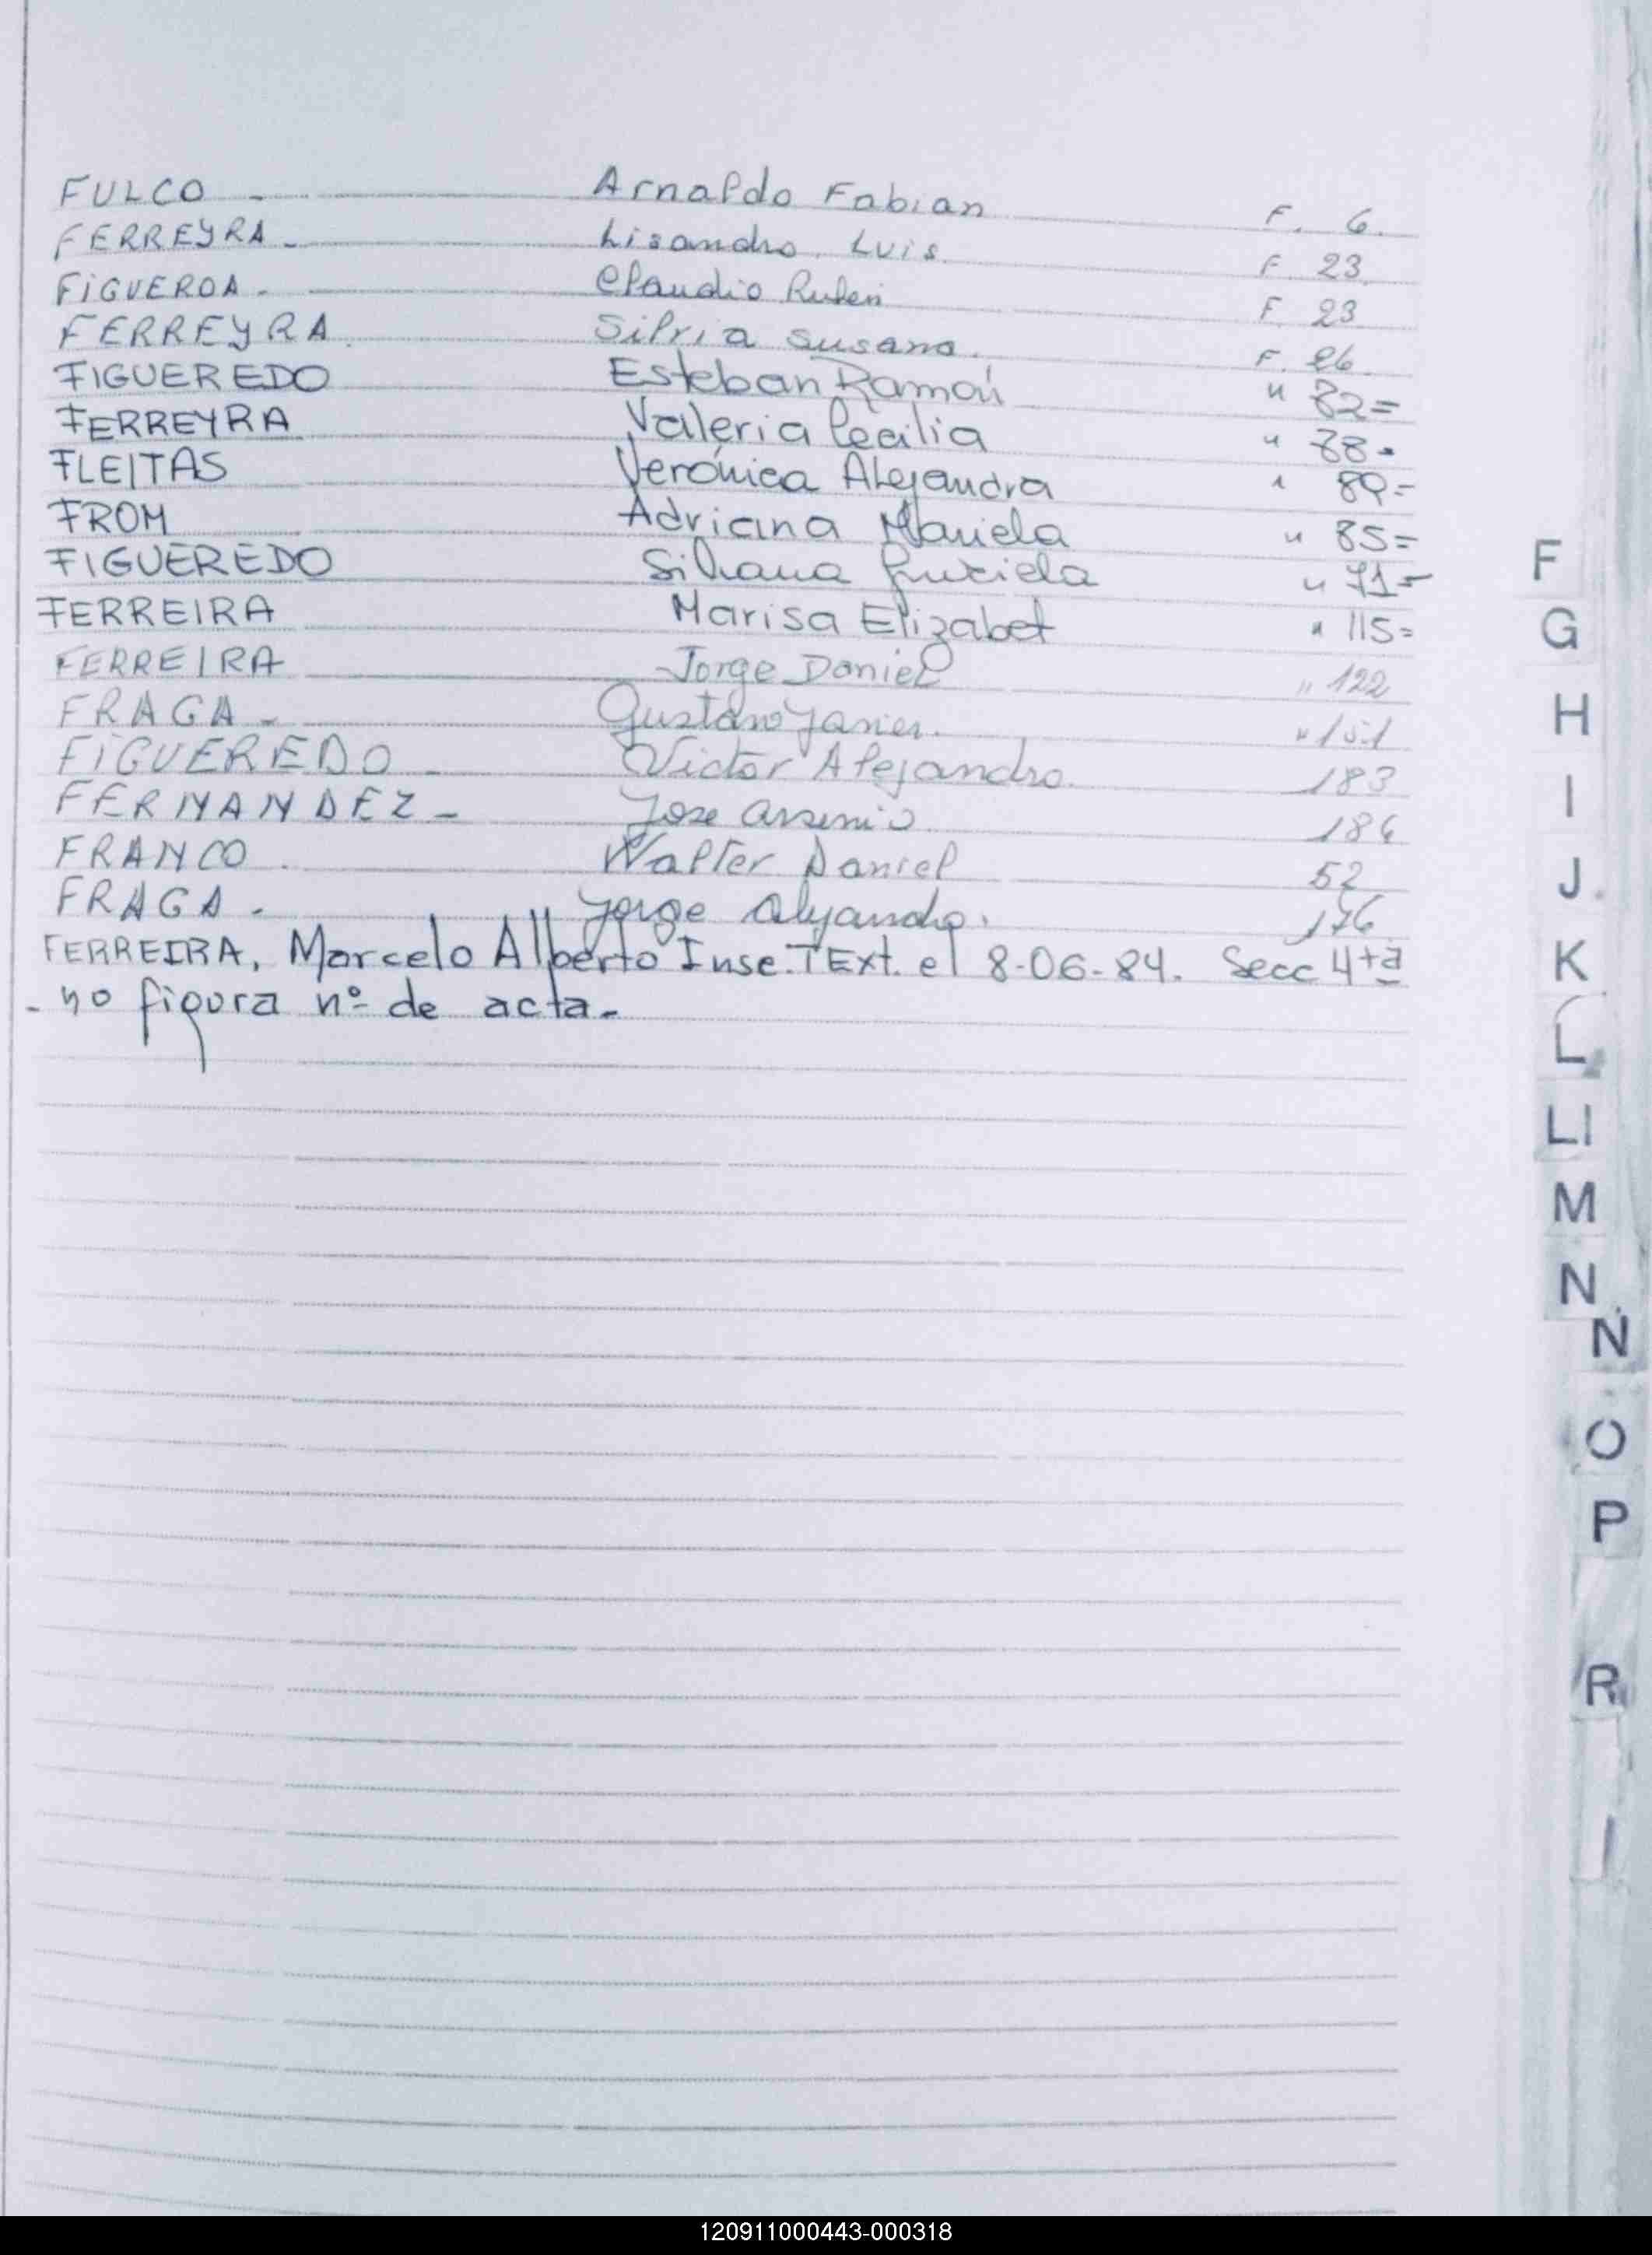 FULCO - Arnaldo Fabian F. 6.
FERREYRA - Lisandro Luis. F 23
FIGUEROA - Claudio Ruben F. 23
FERREYRA. Silvia Susana. F. 26
FIGUEREDO Esteban Ramón " 82=
FERREYRA Valeria Cecilia " 88-
FLEITAS Verónica Alejandra " 89-
FROM Adriana Mariela " 85=
FIGUEREDO Silvana Graciela " 71=
FERREIRA Marisa Elizabet " 115=
FERREIRA Jorge Daniel " 122
FRAGA - Gustavo Javier. " 151
FIGUEREDO - Victor Alejandro. 183
FERNANDEZ - Jose Arsenio 184
FRANCO. Walter Daniel 52
FRAGA - Jorge Alejandro. 176
FERREIRA, Marcelo Alberto Insc. T Ext. el 8-06-84. Secc 4ta
- no figura nº de acta -
F
G
H
I
J
K
L
Ll
M
N
Ñ
O
P
R
120911000443-000318